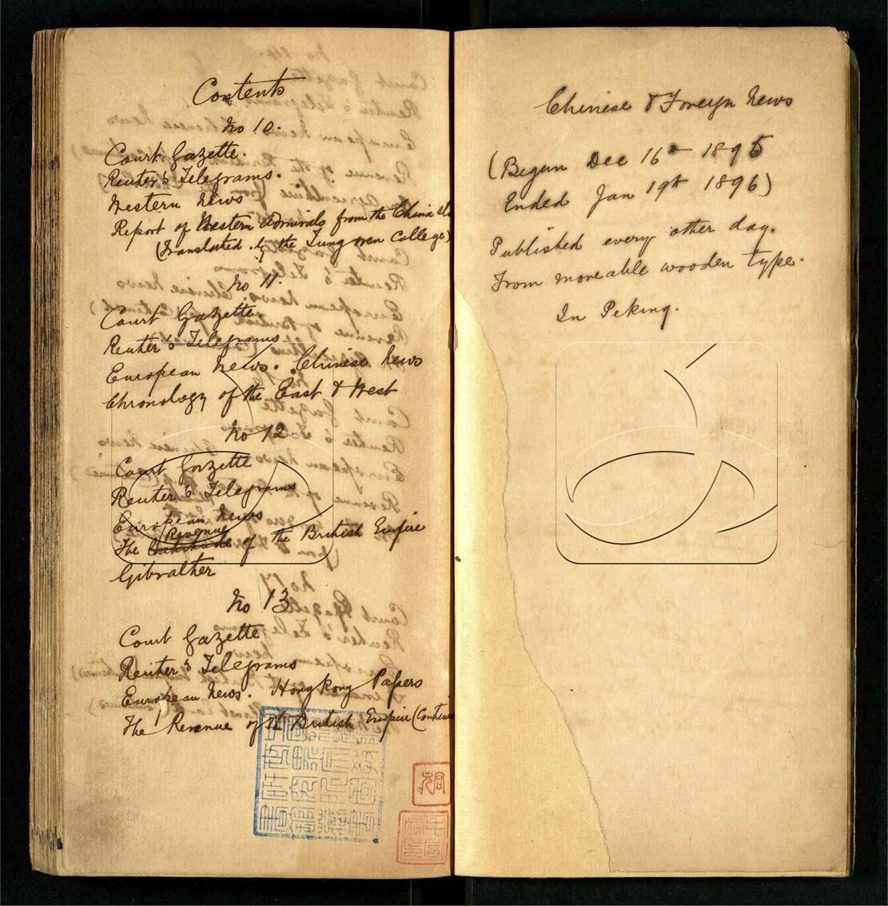 Contents
No 10.
Court Gazette.
Reuter's Telegrams.
Western News
Report of Western Admirals from the China
(Translated by the Tung wen College)
No 11.
Court Gazette
Reuter's Telegrams
European News. Chinese News
Chronology of the East & West
No 12
Court Gazette
Reuter's Telegrams
European News
Revenue
The of the British Empire
Gibralter
No 13
Court Gazette
Reuter's Telegrams
European News. HongKong Papers
The Revenue of the British Empire (Contin
Chinese & Foreign News
(Began Dec 16th 1895
Ended Jan 19th 1896)
Published every other day.
From moveable wooden type.
In Peking.